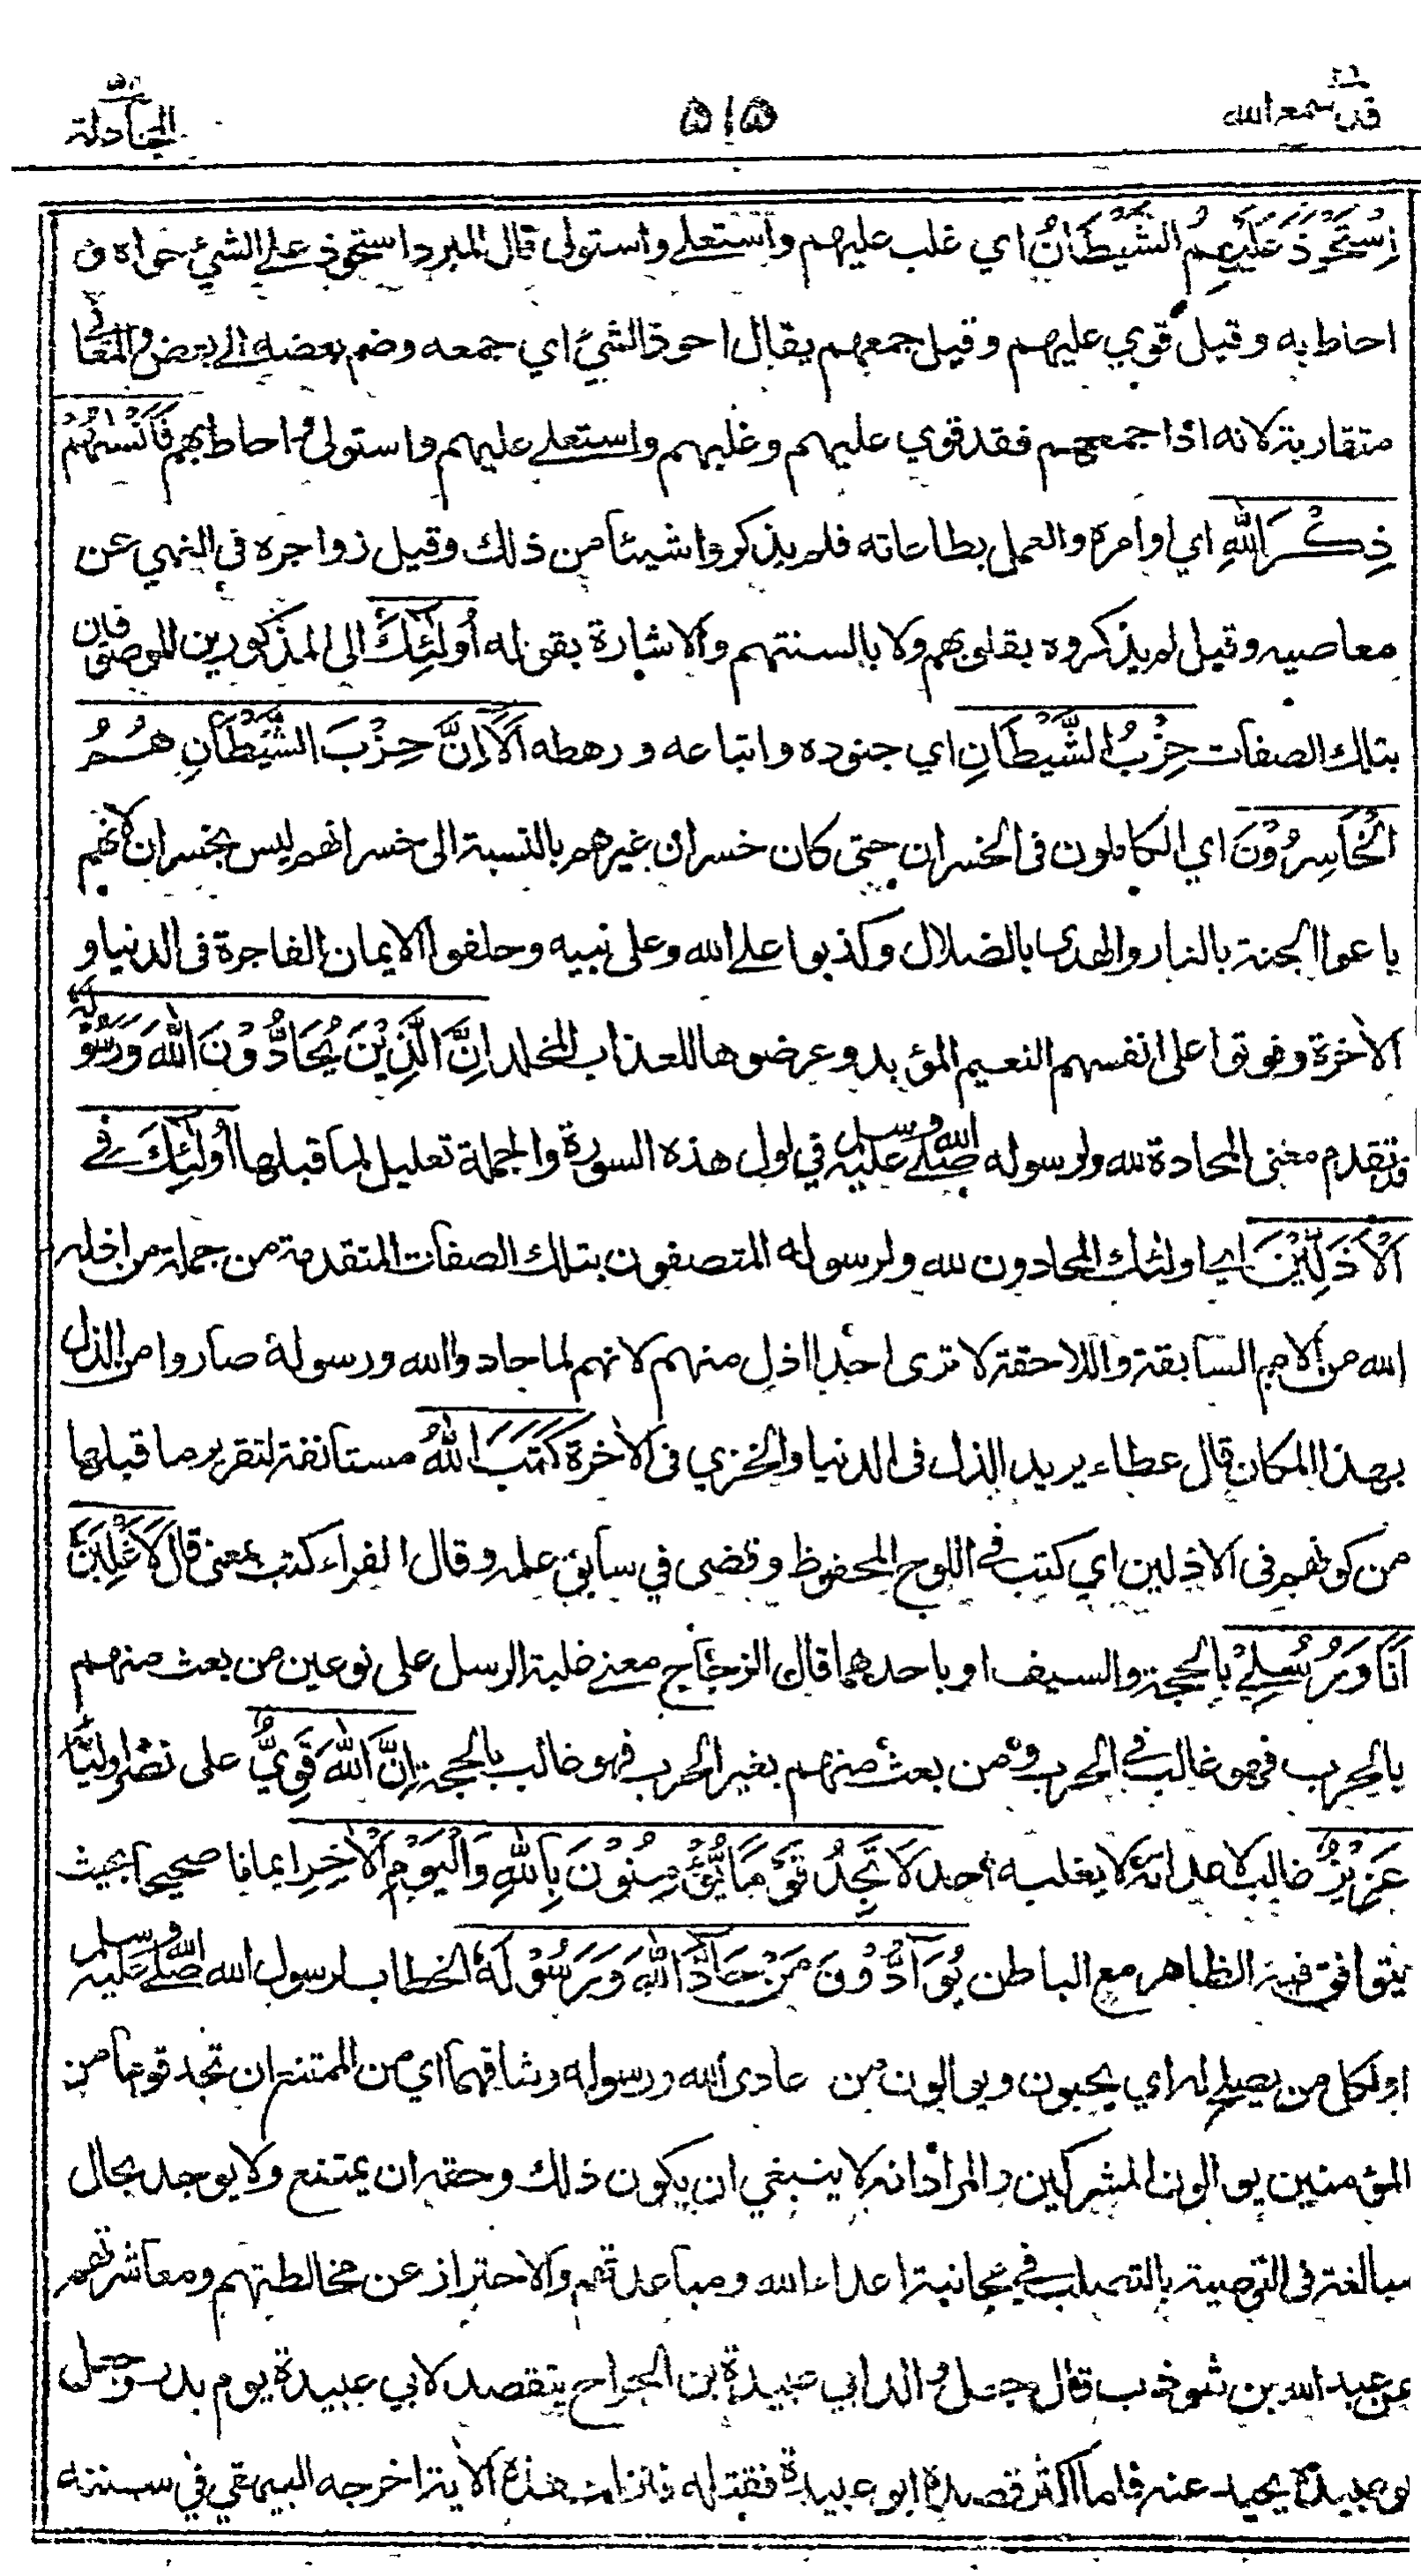 قد سمع الله ٢٨
٥١٥
المجادلة ٥٨
اِسْتَحْوَذَ عَلَيْهِمُ الشَّيْطَانُ اي غلب عليهم واستعلے واستولى قال المبرد استحوذ علے الشئ حواه و
احاط به وقيل قوي عليهم وقيل جمعهم يقال احوذ الشئ اي جمعه وضم بعضه الى بعض والمعاني
متقاربة لانه اذا جمعهم فقد قوي عليهم وغلبهم واستعلے عليهم واستولى واحاط بهم فَاَنْسٰهُمْ
ذِكْرَ اللّٰهِ اي اوامره والعمل بطاعاته فلم يذكروا شيئا من ذلك وقيل زواجره فى النهي عن
معاصيه وقيل لم يذكروه بقلوبهم ولا بالسنتهم والاشارة بقوله اُولٰئِكَ الى المذكورين الموصوفين
بتلك الصفات حِزْبُ الشَّيْطَانِ اي جنوده واتباعه ورهطه اَلَا اِنَّ حِزْبَ الشَّيْطَانِ هُمُ
الْخَاسِرُوْنَ اي الكاملون فى الخسران حتى كان خسران غيرهم بالنسبة الى خسرانهم ليس بخسران لانهم
باعوا الجنة بالنار والهدى بالضلال وكذبوا علے الله وعلى نبيه وحلفوا الايمان الفاجرة فى الدنيا و
الاخرة وفوتوا على انفسهم النعيم المؤبد وعرضوها للعذاب المخلد اِنَّ الَّذِيْنَ يُحَادُّوْنَ اللّٰهَ وَرَسُوْلَهٗ
قد تقدم معنى المحادة لله ولرسوله صلى الله عليه وسلم في اول هذه السورة والجملة تعليل لما قبلها اُولٰئِكَ فِے
الْاَذَلِّيْنَ اي اولئك المحادون لله ولرسوله المتصفون بتلك الصفات المتقدمة من جملة من اذله
الله من الامم السابقة واللاحقة لا ترى احدا اذل منهم لانهم لما حادوا الله ورسوله صاروا من الذل
بهذا المكان قال عطاء يريد الذل فى الدنيا والخزي فى الاخرة كَتَبَ اللّٰهُ مستانفة لتقرير ما قبلها
من كونهم فى الاذلين اي كتب فے اللوح المحفوظ وقضى في سابق علمه وقال الفراء كتب بمعنى قال لَاَغْلِبَنَّ
اَنَا وَرُسُلِيْ بالحجة والسيف او باحدهما قال الزجاج معنے غلبة الرسل على نوعين من بعث منهم
بالحرب فهو غالب فے الحرب ومن بعث منهم بغير الحرب فهو غالب بالحجة اِنَّ اللّٰهَ قَوِيٌّ على نصر اوليائه
عَزِيْزٌ غالب لاعدائه لا يغلبه احد لَا تَجِدُ قَوْمًا يُّؤْمِنُوْنَ بِاللّٰهِ وَالْيَوْمِ الْاٰخِرِ ايمانا صحيحا بحيث
يتوافق فيه الظاهر مع الباطن يُوَآدُّوْنَ مَنْ حَادَّ اللّٰهَ وَرَسُوْلَهٗ الخطاب لرسول الله صلى الله عليه وسلم
او لكل من يصلح له اي يحبون ويوالون من عادى الله ورسوله وشاقهما اي من الممتنع ان تجد قوما من
المؤمنين يوالون المشركين والمراد انه لا ينبغي ان يكون ذلك وحقه ان يمتنع ولا يوجد بحال
مبالغة فى التوصية بالتصلب في مجانبة اعداء الله ومباعدتهم والاحتراز عن مخالطتهم ومعاشرتهم
عن عبد الله بن شوذب قال جعل والد ابي عبيدة بن الجراح يتقصد لابي عبيدة يوم بدر وجعل
ابو عبيدة يحيد عنه فلما اكثر قصده ابو عبيدة فقتله فانزلت هذه الاية اخرجه البيهقي في سننه